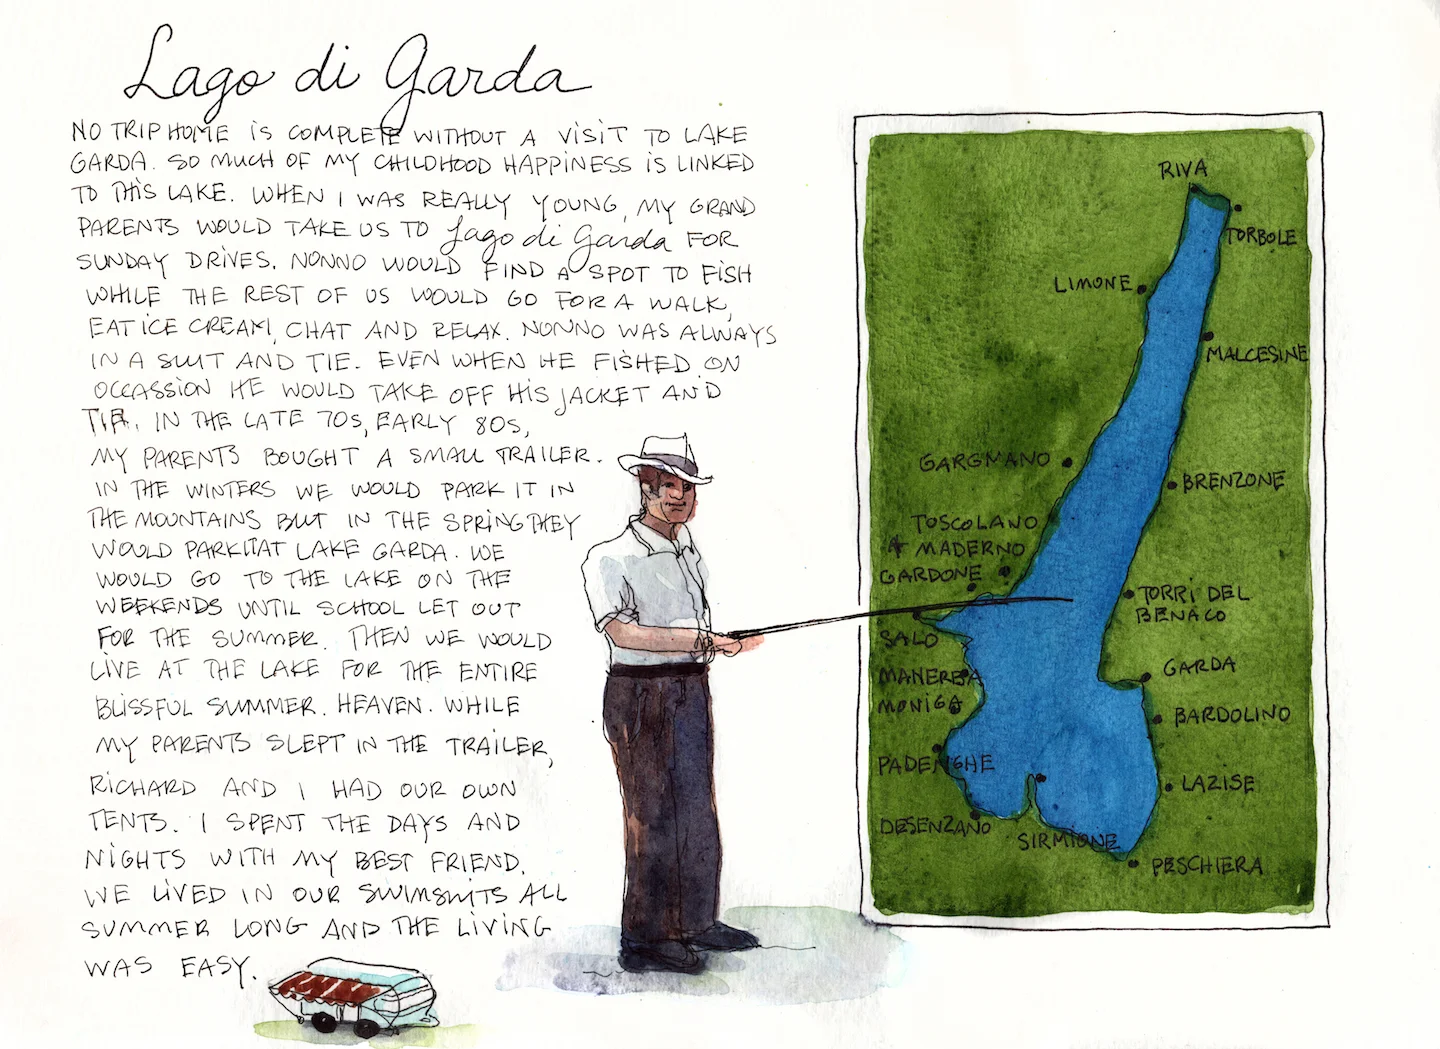 Lago di Garda
NO TRIP HOME IS COMPLETE WITHOUT A VISIT TO LAKE
GARDA. SO MUCH OF MY CHILDHOOD HAPPINESS IS LINKED
TO THIS LAKE. WHEN I WAS REALLY YOUNG, MY GRAND
PARENTS WOULD TAKE US TO Lago di Garda FOR
SUNDAY DRIVES. NONNO WOULD FIND A SPOT TO FISH
WHILE THE REST OF US WOULD GO FOR A WALK,
EAT ICE CREAM, CHAT AND RELAX. NONNO WAS ALWAYS
IN A SUIT AND TIE. EVEN WHEN HE FISHED. ON
OCCASSION HE WOULD TAKE OFF HIS JACKET AND
TIE. IN THE LATE 70S, EARLY 80S,
MY PARENTS BOUGHT A SMALL TRAILER.
IN THE WINTERS WE WOULD PARK IT IN
THE MOUNTAINS BUT IN THE SPRING THEY
WOULD PARK IT AT LAKE GARDA. WE
WOULD GO TO THE LAKE ON THE
WEEKENDS UNTIL SCHOOL LET OUT
FOR THE SUMMER. THEN WE WOULD
LIVE AT THE LAKE FOR THE ENTIRE
BLISSFUL SUMMER. HEAVEN. WHILE
MY PARENTS SLEPT IN THE TRAILER,
RICHARD AND I HAD OUR OWN
TENTS. I SPENT THE DAYS AND
NIGHTS WITH MY BEST FRIEND.
WE LIVED IN OUR SWIMSUITS ALL
SUMMER LONG AND THE LIVING
WAS EASY.
RIVA
TORBOLE
LIMONE
MALCESINE
GARGMANO
BRENZONE
TOSCOLANO
MADERNO
GARDONE
TORRI DEL
BENACO
SALO
GARDA
MANERBA
MONIGA
BARDOLINO
PADENGHE
LAZISE
DESENZANO
SIRMIONE
PESCHIERA